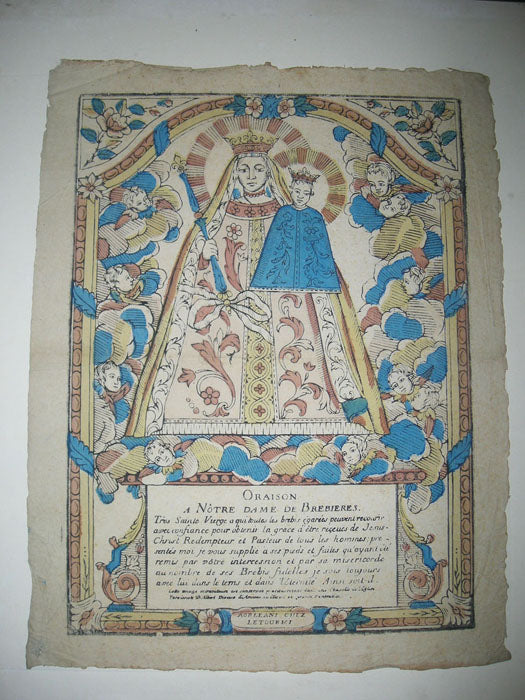 ORAISON
A NÔTRE DAME DE BREBIERES.
Très Sainte Vierge a qui toutes les brebis égarées peuvent recourir
avec confiance pour obtenir la grace d'être reçeues de Jesus-
Christ Redempteur et Pasteur de tous les hommes, pre
sentés moi je vous supplie a ses pieds et faites qu'ayant été
remis par vôtre intercession et par sa misericorde
au nombre de ses Brebis fidelles je sois toujours
avec lui dans le tems et dans l'éternité Ainsi soit-il.
Cette image miraculeuse est conservée
d'Albert Diocese d'Amiens
A ORLEANS CHEZ
LETOURMI